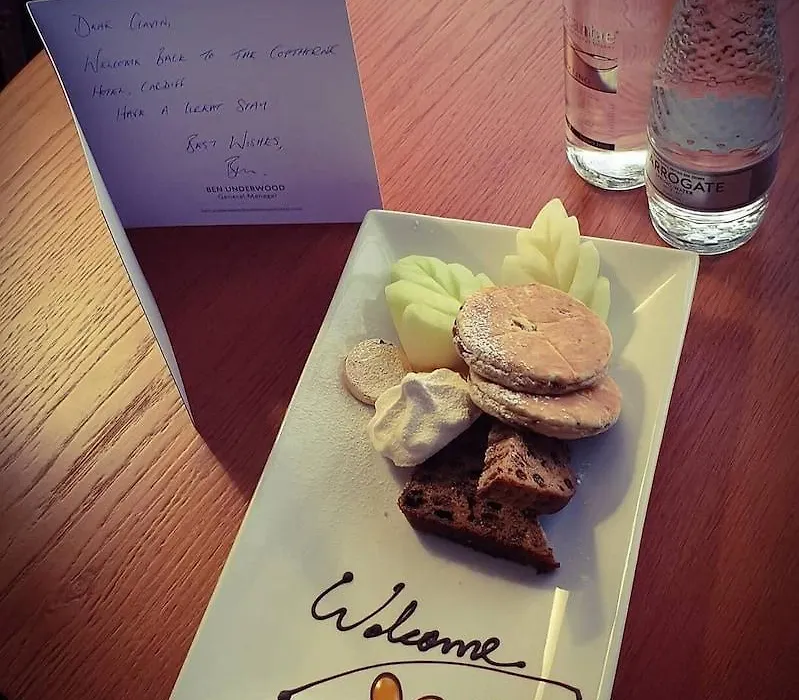 DEAR GAVIN,
WELCOME BACK TO THE COPTHORNE
HOTEL, CARDIFF
HAVE A GREAT STAY
BEST WISHES,
Ben
BEN UNDERWOOD
General Manager
RROGATE
WATER
Welcome